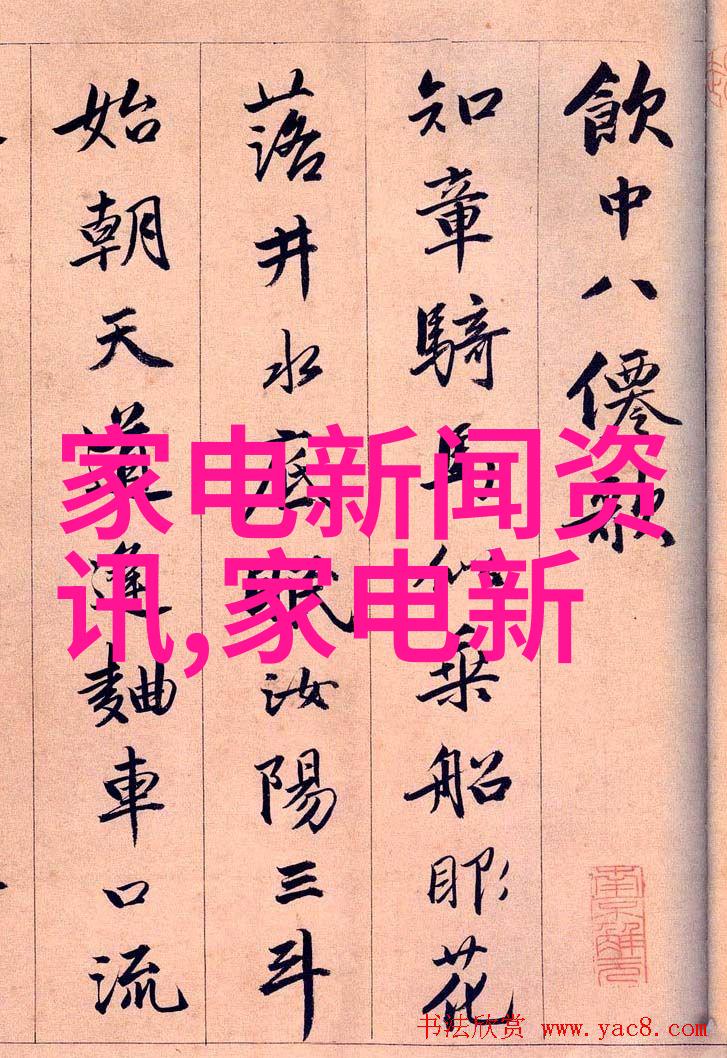 飲中八僊歌
知章騎馬似乘船眼花
落井水底眠汝陽三斗
始朝天道逢麯車口流
家电新闻资
讯,家电新
南京解元
书法欣赏 www.yac8.com